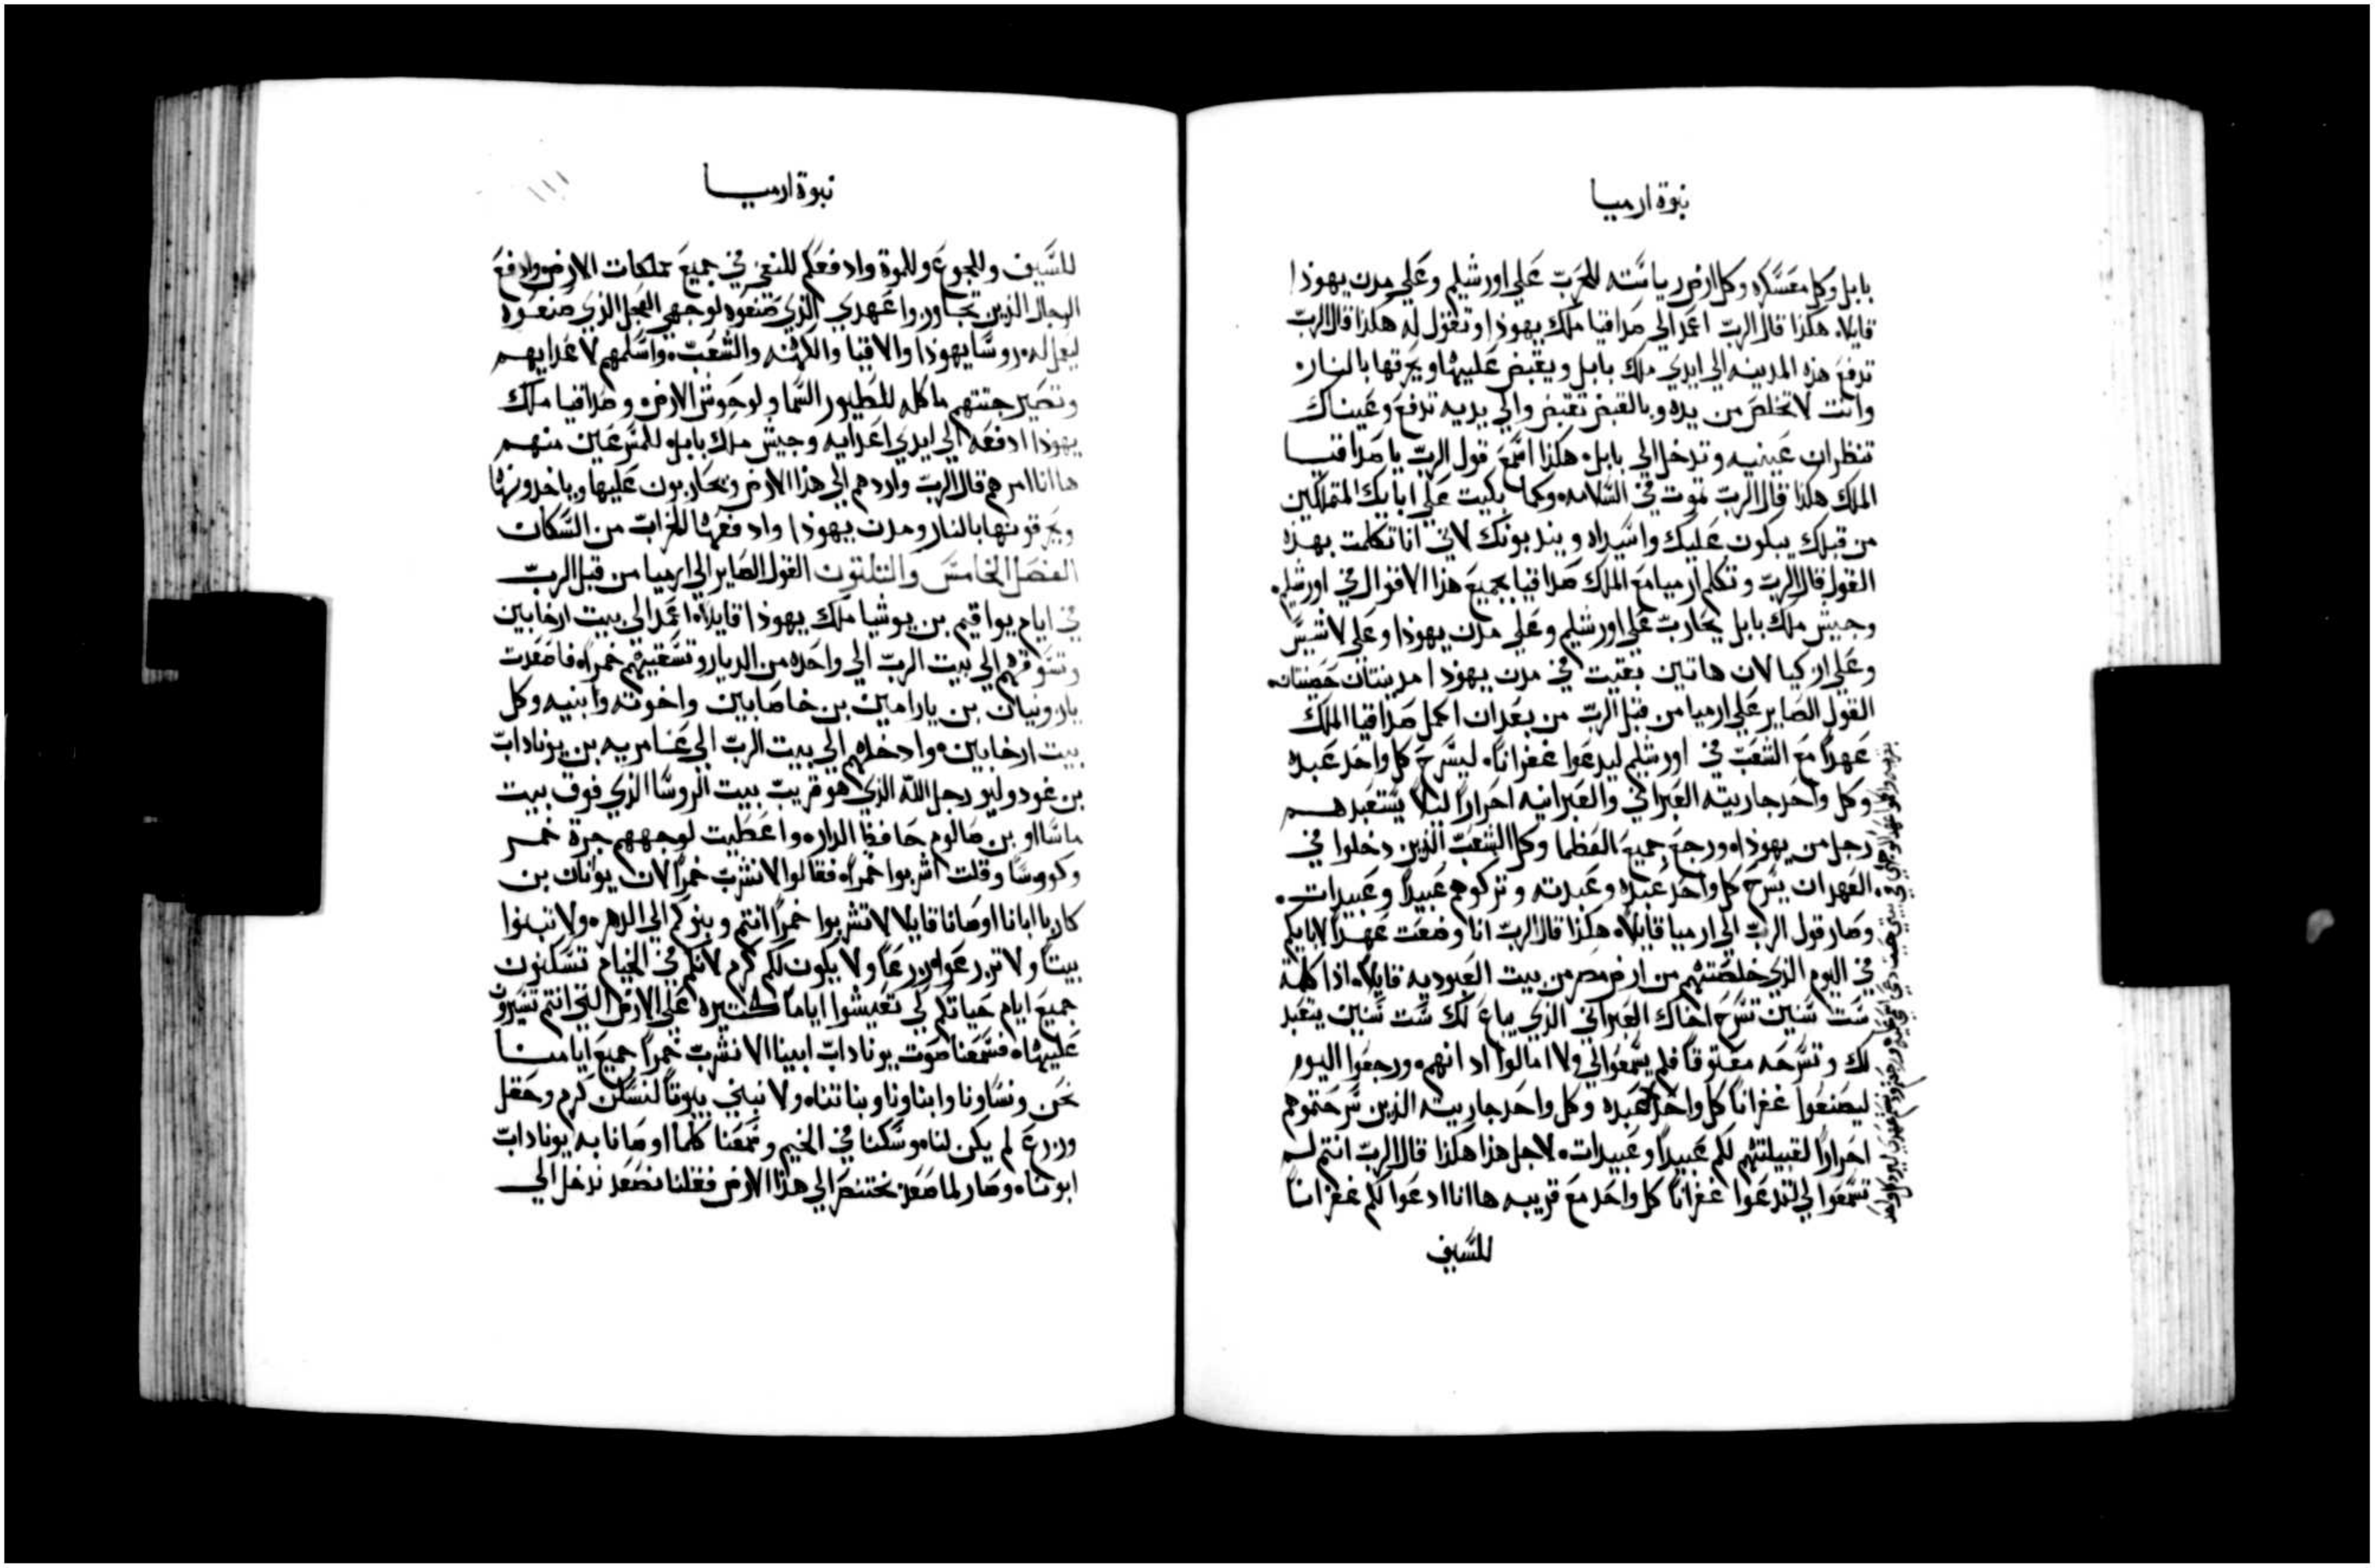 نبوة ارميا
بابل وكل معسكره وكل ارض رياسته للحرب علي اورشليم وعلي مدن يهوذا
قايلا هكذا قال الرب اعمد الي صداقيا ملك يهوذا وتقول له هكذا قال الرب
تدفع هذه المدينه الي ايدي ملك بابل ويقبض عليها ويحرقها بالنار
وانت لا تخلص من يده وبالقبض تقبض والي يديه تدفع وعيناك
تنظران عينيه وتدخل الي بابل هكذا اسمع قول الرب يا صداقيا
الملك هكذا قال الرب تموت في السلامه وكما بكيت علي ابايك المتملكين
من قبلك يبكون عليك واسيداه ويندبونك لاني انا تكلمت بهذه
القول قال الرب وتكلم ارميا مع الملك صداقيا بجميع هذا الاقوال في اورشليم
وجيش ملك بابل يحارب علي اورشليم وعلي مدن يهوذا وعلي لاشيس
وعلي ازكيا لان هاتين بقيت في مدن يهوذا مدينتان حصنتان
القول الصاير علي ارميا من قبل الرب من بعد ان اكمل صداقيا الملك
عهدًا مع الشعب في اورشليم ليدعوا غفرانًا ليسرح كل واحد عبده
وكل واحد جاريته العبراني والعبرانيه احرارًا ليلا يستعبدهم
رجل من يهوذا ورجع جميع العظما وكل الشعب الذين دخلوا في
العهد ان يسرح كل واحد عبده وعبدته وتركوهم عبيدًا وعبيدات
وصار قول الرب الي ارميا قايلًا هكذا قال الرب انا وضعت عهدًا لابايكم
في اليوم الذي خلصتهم من ارض مصر من بيت العبوديه قايلًا اذا كملة
ست سنين تسرح اخاك العبراني الذي يباع لك ست سنين يتعبد
لك وتسرحه معتوقًا فلم يسمعوا لي ولا امالوا ادانهم ورجعوا اليوم
ليصنعوا غفرانًا كل واحد عبده وكل واحد جاريته الذين سرحتموهم
احرارًا لقبيلتهم لكم عبيدًا وعبيدات لاجل هذا هكذا قال الرب انتم لم
تسمعوا لي لتدعوا غفرانًا كل واحد مع قريبه هاانا ادعوا لكم غفرانًا
للسيف
نبوة ارميا
١١١
للسيف وللجوع وللموة وادفعكم للنفي في جميع مملكات الارض وادفع
الرجال الذين تجاوزوا عهدي الذي صنعوه لوجهي العجل الذي صنعوه
ليعمل له روسا يهوذا والاقنيا والكهنه والشعب واسلمهم لاعدايهم
وتصير جتتهم ماكله للطيور السما ولوحوش الارض وصداقيا ملك
يهوذا ادفعه الي ايدي اعدايه وجيش ملك بابل للمسرعين منهم
هاانا امرهم قال الرب واردهم الي هذا الارض ويحاربون عليها وياخدونها
ويحرقونها بالنار ومدن يهوذا وادفعها للخراب من السكان
الفصل الخامس والتلتون القول الصاير الي ارميا من قبل الرب
في ايام يواقيم بن يوشيا ملك يهوذا قايلًا اعمد الي بيت ارخابين
وتسوقهم الي بيت الرب الي واحده من الديار وتسقيهم خمرًا فاصعدت
يازونيان بن يارامين بن خاصابين واخوته وابنيه وكل
بيت ارخابين وادخلتهم الي بيت الرب الي عنامريه بن يوناداب
بن غودوليو رجل الله الذي هو قريب بيت الروسا الذي فوق بيت
ماسااو بن صالوم حافظ الدار واعطيت لوجههم جرة خمر
وكووسًا وقلت اشربوا خمرًا فقالوا لا نشرب خمرًا لان يونان بن
كاربا ابانا اوصانا قايلا لا تشربوا خمرًا انتم وبنوكم الي الدهر ولا تبنوا
بيتًا ولا تزرعوا زرعًا ولا يكون لكم كرم لانكم في الخيام تسكنون
جميع ايام حياتكم لكي تعيشوا ايامًا كتيره علي الارض التي انتم تسيرون
عليها فسمعنا صوت يوناداب ابينا الا نشرب خمرًا جميع ايامنا
نحن ونساونا وابناونا وبناتنا ولا نبني بيوتًا لنسكن كرم وحقل
وزرع لم يكن لنا وسكنا في الخيم وسمعنا كلما اوصانا به يوناداب
ابونا وصار لما صعد بختنصر الي هذا الارض فقلنا نصعد ندخل الي